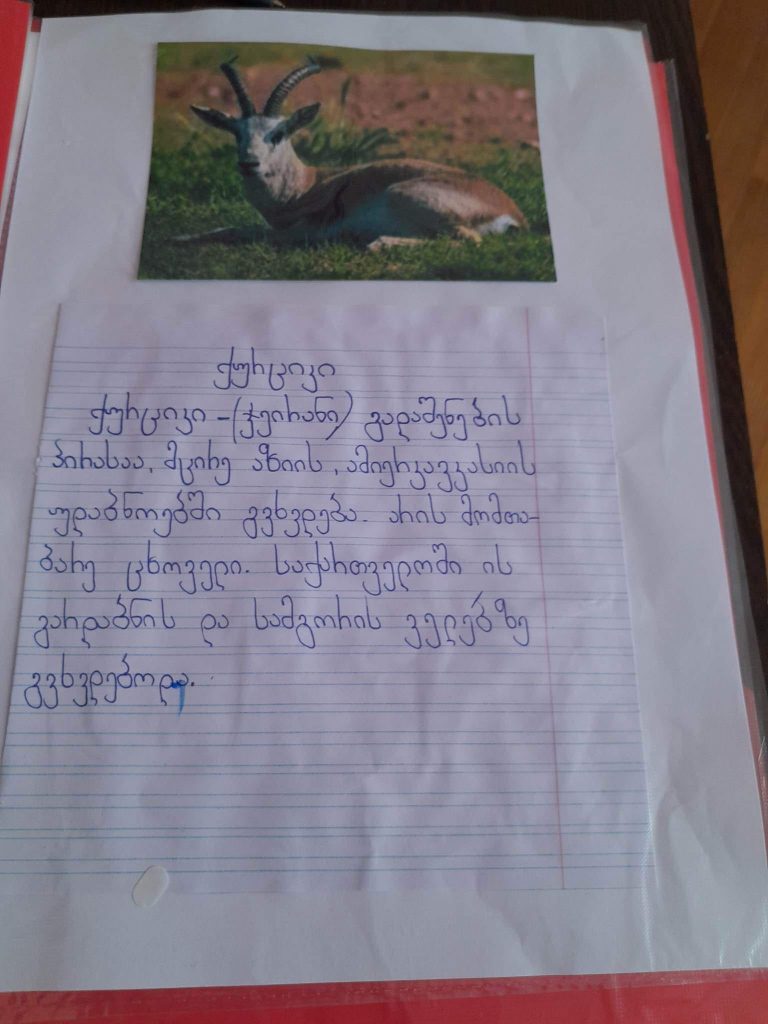 ქურციკი
ქურციკი -(ჯეირანი) გადაშენების
პირასაა, მცირე აზიის, ამიერკავკასიის
უდაბნოებში გვხვდება. არის მომთა-
ბარე ცხოველი. საქართველოში ის
გარდაბნის და სამგორის ველებზე
გვხვდებოდა.